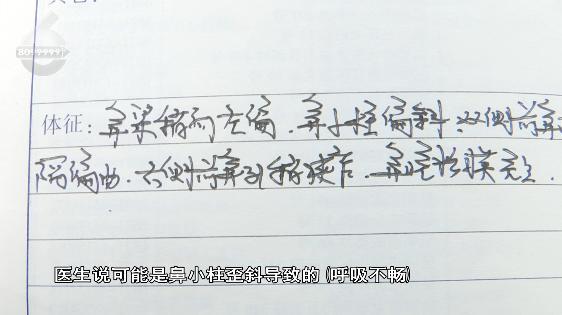 8099999
体征：鼻梁稍向左偏．鼻小柱偏斜．双侧鼻
隔偏曲．右侧鼻孔稍狭窄．鼻腔粘膜
医生说可能是鼻小柱歪斜导致的（呼吸不畅）